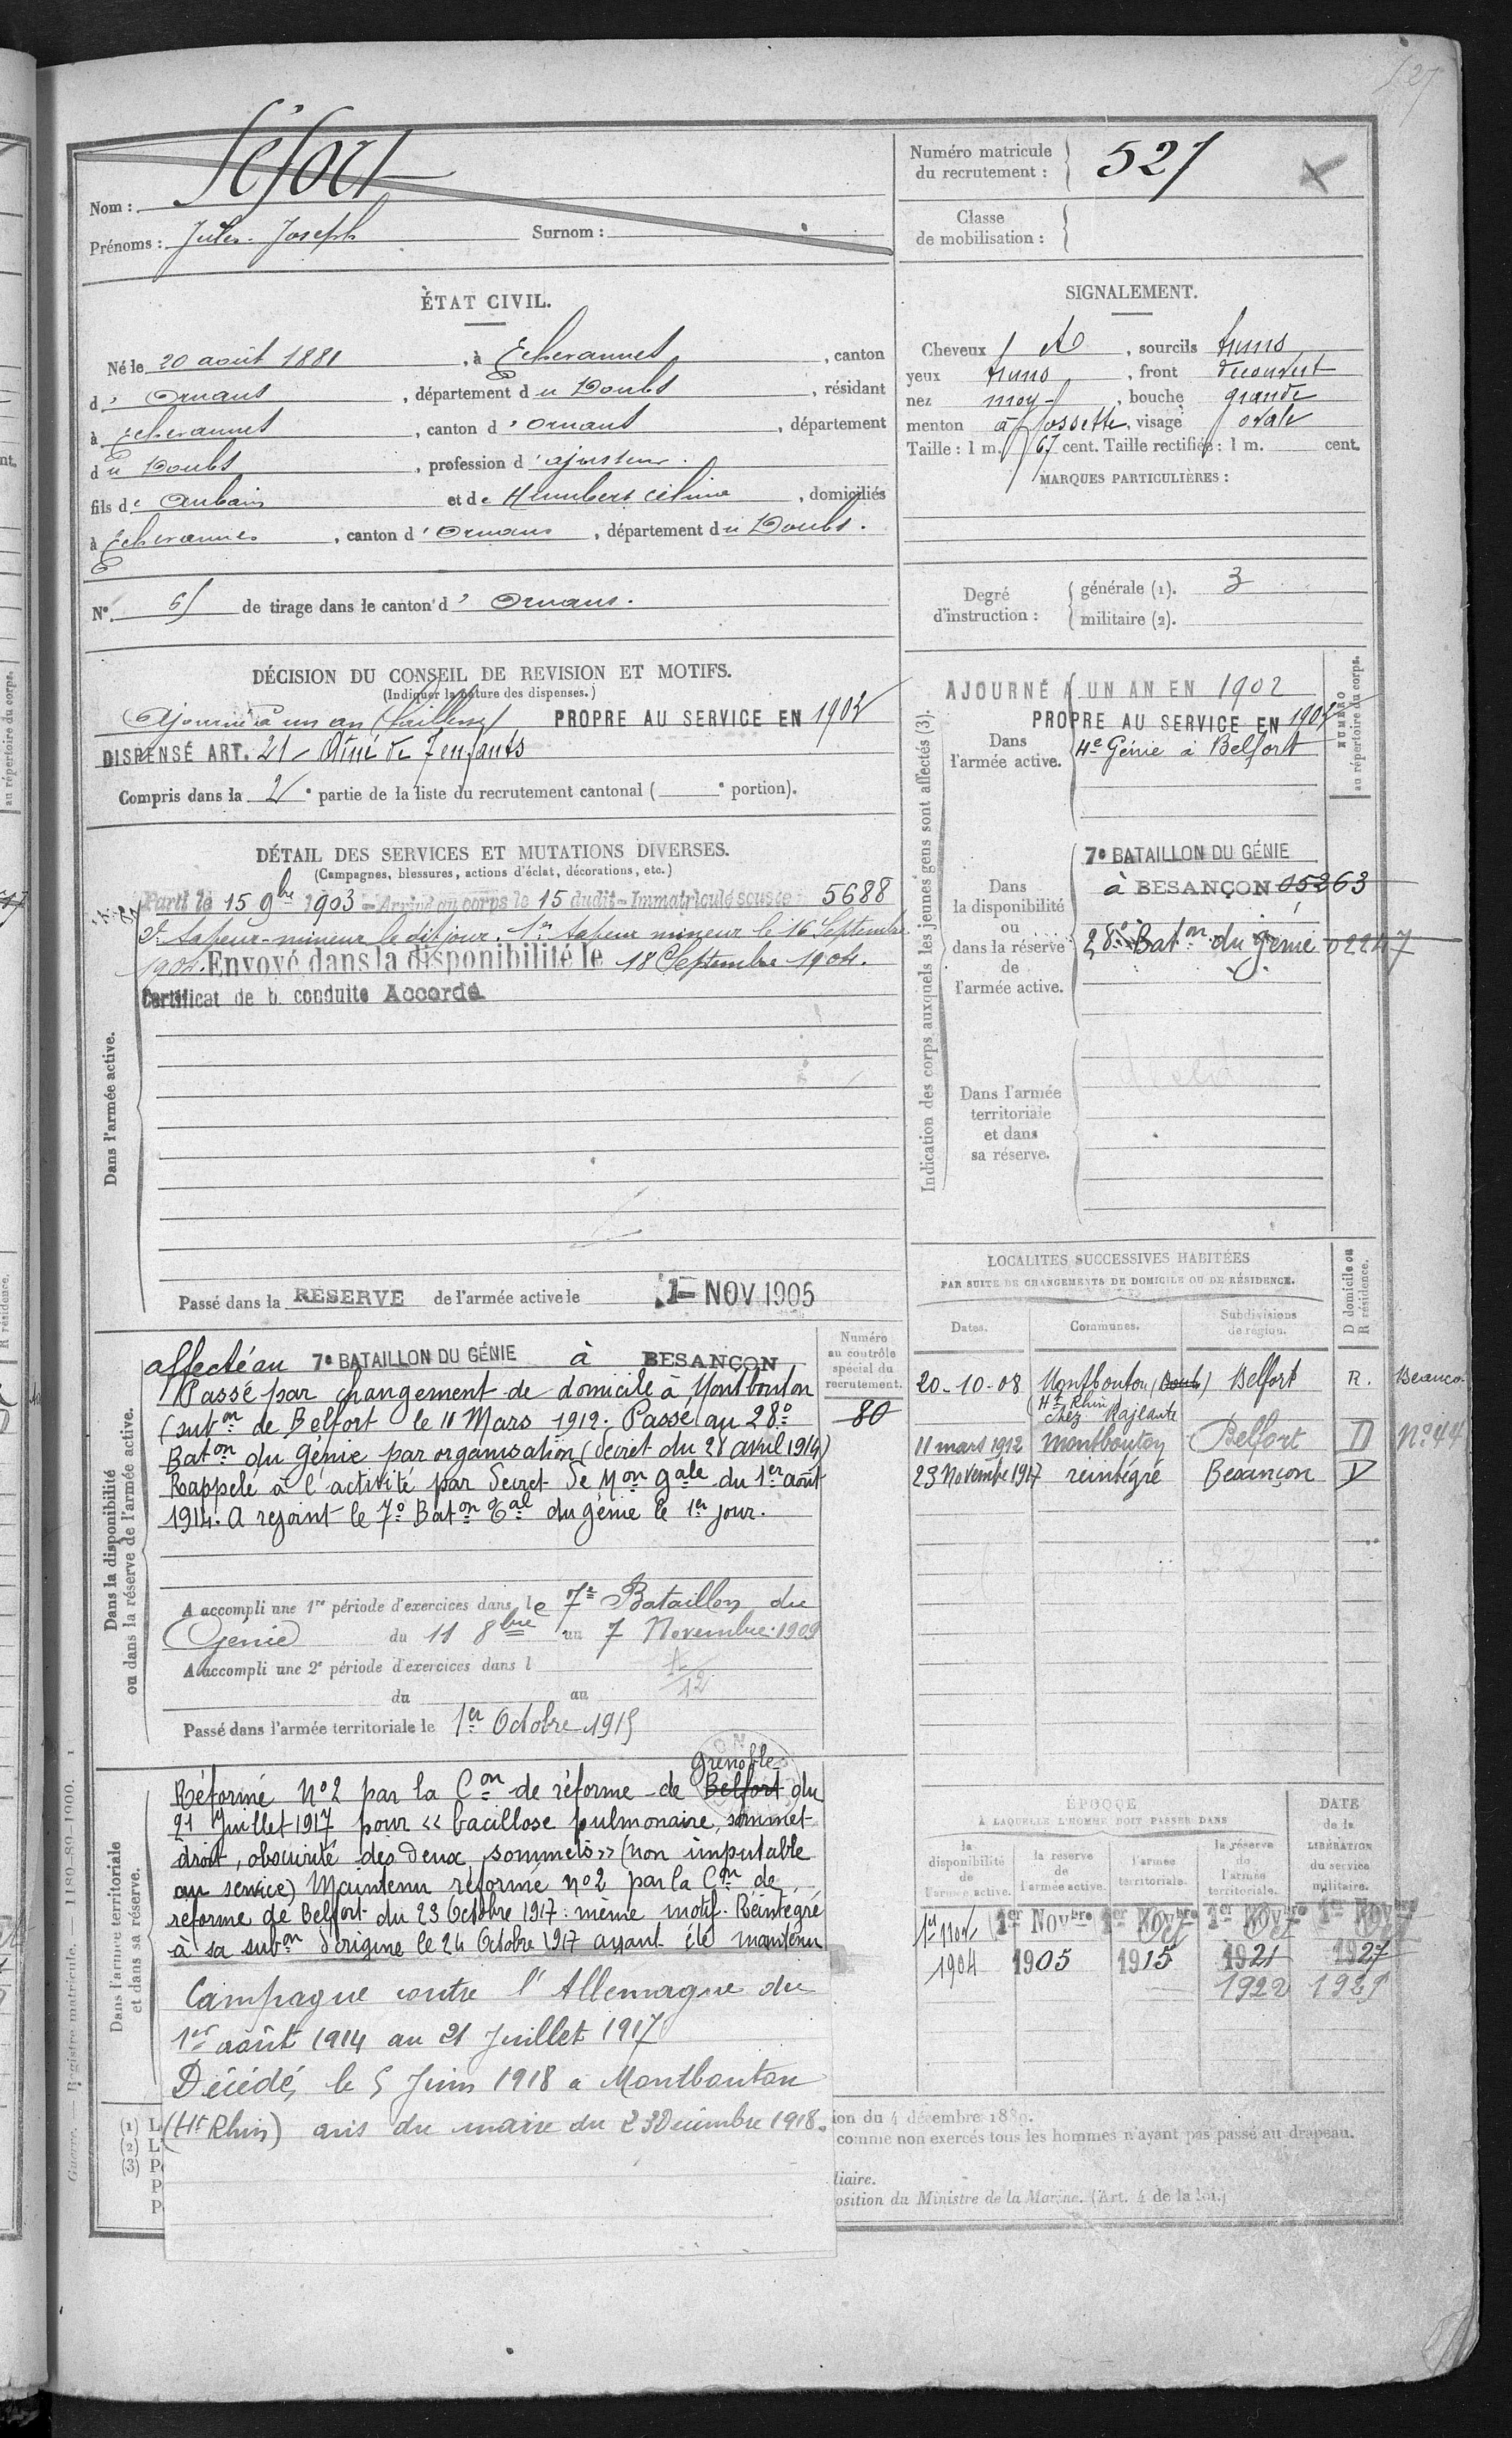 527
Nom : Séfort
Prénoms : Jules Joseph Surnom :
Numéro matricule du recrutement : 527
Classe de mobilisation :
ÉTAT CIVIL.
Né le 20 août 1881, à Echevannes, canton
d' Ornans, département du Doubs, résidant
à Echevannes, canton d'Ornans, département
du Doubs, profession d'ajusteur.
fils de Aubain et de Humbert Céline, domiciliés
à Echevannes, canton d'Ornans, département du Doubs.
N° de tirage dans le canton d' Ornans.
SIGNALEMENT.
Cheveux, sourcils bruns
yeux bruns, front découvert
nez moy-, bouche grande
menton à fossette, visage ovale
Taille : 1 m. 67 cent. Taille rectifiée : 1 m. cent.
MARQUES PARTICULIÈRES :
Degré d'instruction :
générale (1). 3
militaire (2).
DÉCISION DU CONSEIL DE REVISION ET MOTIFS.
(Indiquer la nature des dispenses.)
Ajourné à un an (faiblesse) PROPRE AU SERVICE EN 190
DISPENSÉ ART. 21 - Aîné de 7 enfants
Compris dans la 2e partie de la liste du recrutement cantonal ( e portion).
DÉTAIL DES SERVICES ET MUTATIONS DIVERSES.
(Campagnes, blessures, actions d'éclat, décorations, etc.)
Dans l'armée active.
Parti le 15 9bre 1903 - Arrivé au corps le 15 dudit - Immatriculé sous le n° 5688
2e sapeur-mineur le dit jour. 1er sapeur mineur le 16 Septembre
1904. Envoyé dans la disponibilité le 18 Septembre 1904.
Certificat de b. conduite Accordé
Passé dans la RÉSERVE de l'armée active le 1- NOV 1905
Indication des corps auxquels les jeunes gens sont affectés (3).
NUMÉRO au répertoire du corps.
AJOURNÉ A UN AN EN 1902
PROPRE AU SERVICE EN 190
Dans l'armée active.
4e Génie à Belfort
Dans la disponibilité ou dans la réserve de l'armée active.
7e BATAILLON DU GÉNIE
à BESANÇON 05263
28e Baton du génie 02247
Dans l'armée territoriale et dans sa réserve.
LOCALITÉS SUCCESSIVES HABITÉES
PAR SUITE DE CHANGEMENTS DE DOMICILE OU DE RÉSIDENCE.
Dates. Communes. Subdivisions de région. D domicile ou R résidence.
20-10-08 Montbouton (Doubs) Belfort R. Besanço.
(Ht Rhin)
chez Rajlaute
11 mars 1912 Montbouton Belfort D N° 44
23 Novembre 1917 réintégré Besançon D
Dans la disponibilité ou dans la réserve de l'armée active.
Numéro au contrôle spécial du recrutement.
80
affecté au 7e BATAILLON DU GÉNIE à BESANÇON
Passé par changement de domicile à Montbouton
(subon de Belfort le 11 Mars 1912. Passé au 28e
Baton du Génie par organisation (décret du 28 avril 1914)
Rappelé à l'activité par Décret de Mon Gale du 1er août
1914. A rejoint le 7e Baton Tal du génie le 1er jour.
A accompli une 1re période d'exercices dans le 7e Bataillon du
Génie du 11 8bre au 7 Novembre 1909
A accompli une 2e période d'exercices dans l
du au
Passé dans l'armée territoriale le 1er Octobre 1915
Dans l'armée territoriale et dans sa réserve.
Grenoble
Réformé N°2 par la Con de réforme de Belfort du
21 Juillet 1917 pour « bacillose pulmonaire, sommet
droit, obscurité des deux sommets » (non imputable
au service) Maintenu réformé n°2 par la Con de
réforme de Belfort du 23 Octobre 1917 : même motif. Réintégré
à sa subon d'origine le 24 Octobre 1917 ayant été maintenu
Campagne contre l'Allemagne du
1er août 1914 au 21 Juillet 1917
Décédé le 5 Juin 1918 a Montbouton
(Ht Rhin) avis du maire du 23 Décembre 1918.
ÉPOQUE À LAQUELLE L'HOMME DOIT PASSER DANS
la disponibilité de l'armée active. la réserve de l'armée active. l'armée territoriale. la réserve de l'armée territoriale.
DATE de la LIBÉRATION du service militaire.
1er Nov 1er Novbre 1er Novbre 1er Novbre 1er Novbre
1904 1905 1915 1921 1927
1922
ion du 4 décembre 1889.
comme non exercés tous les hommes n'ayant pas passé au drapeau.
liaire.
osition du Ministre de la Marine. (Art. 4 de la loi.)
Guerre. — Registre matricule. — 1180-89-1900.